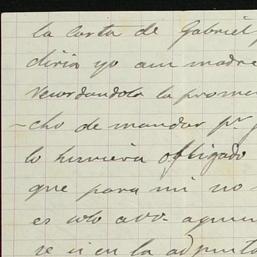 la carta de Gabriel
diria yo a mi madre
recordandola la prome
cho de mandar pr
lo huviera obligado
que para mi no
es solo
se ve en la adjunta